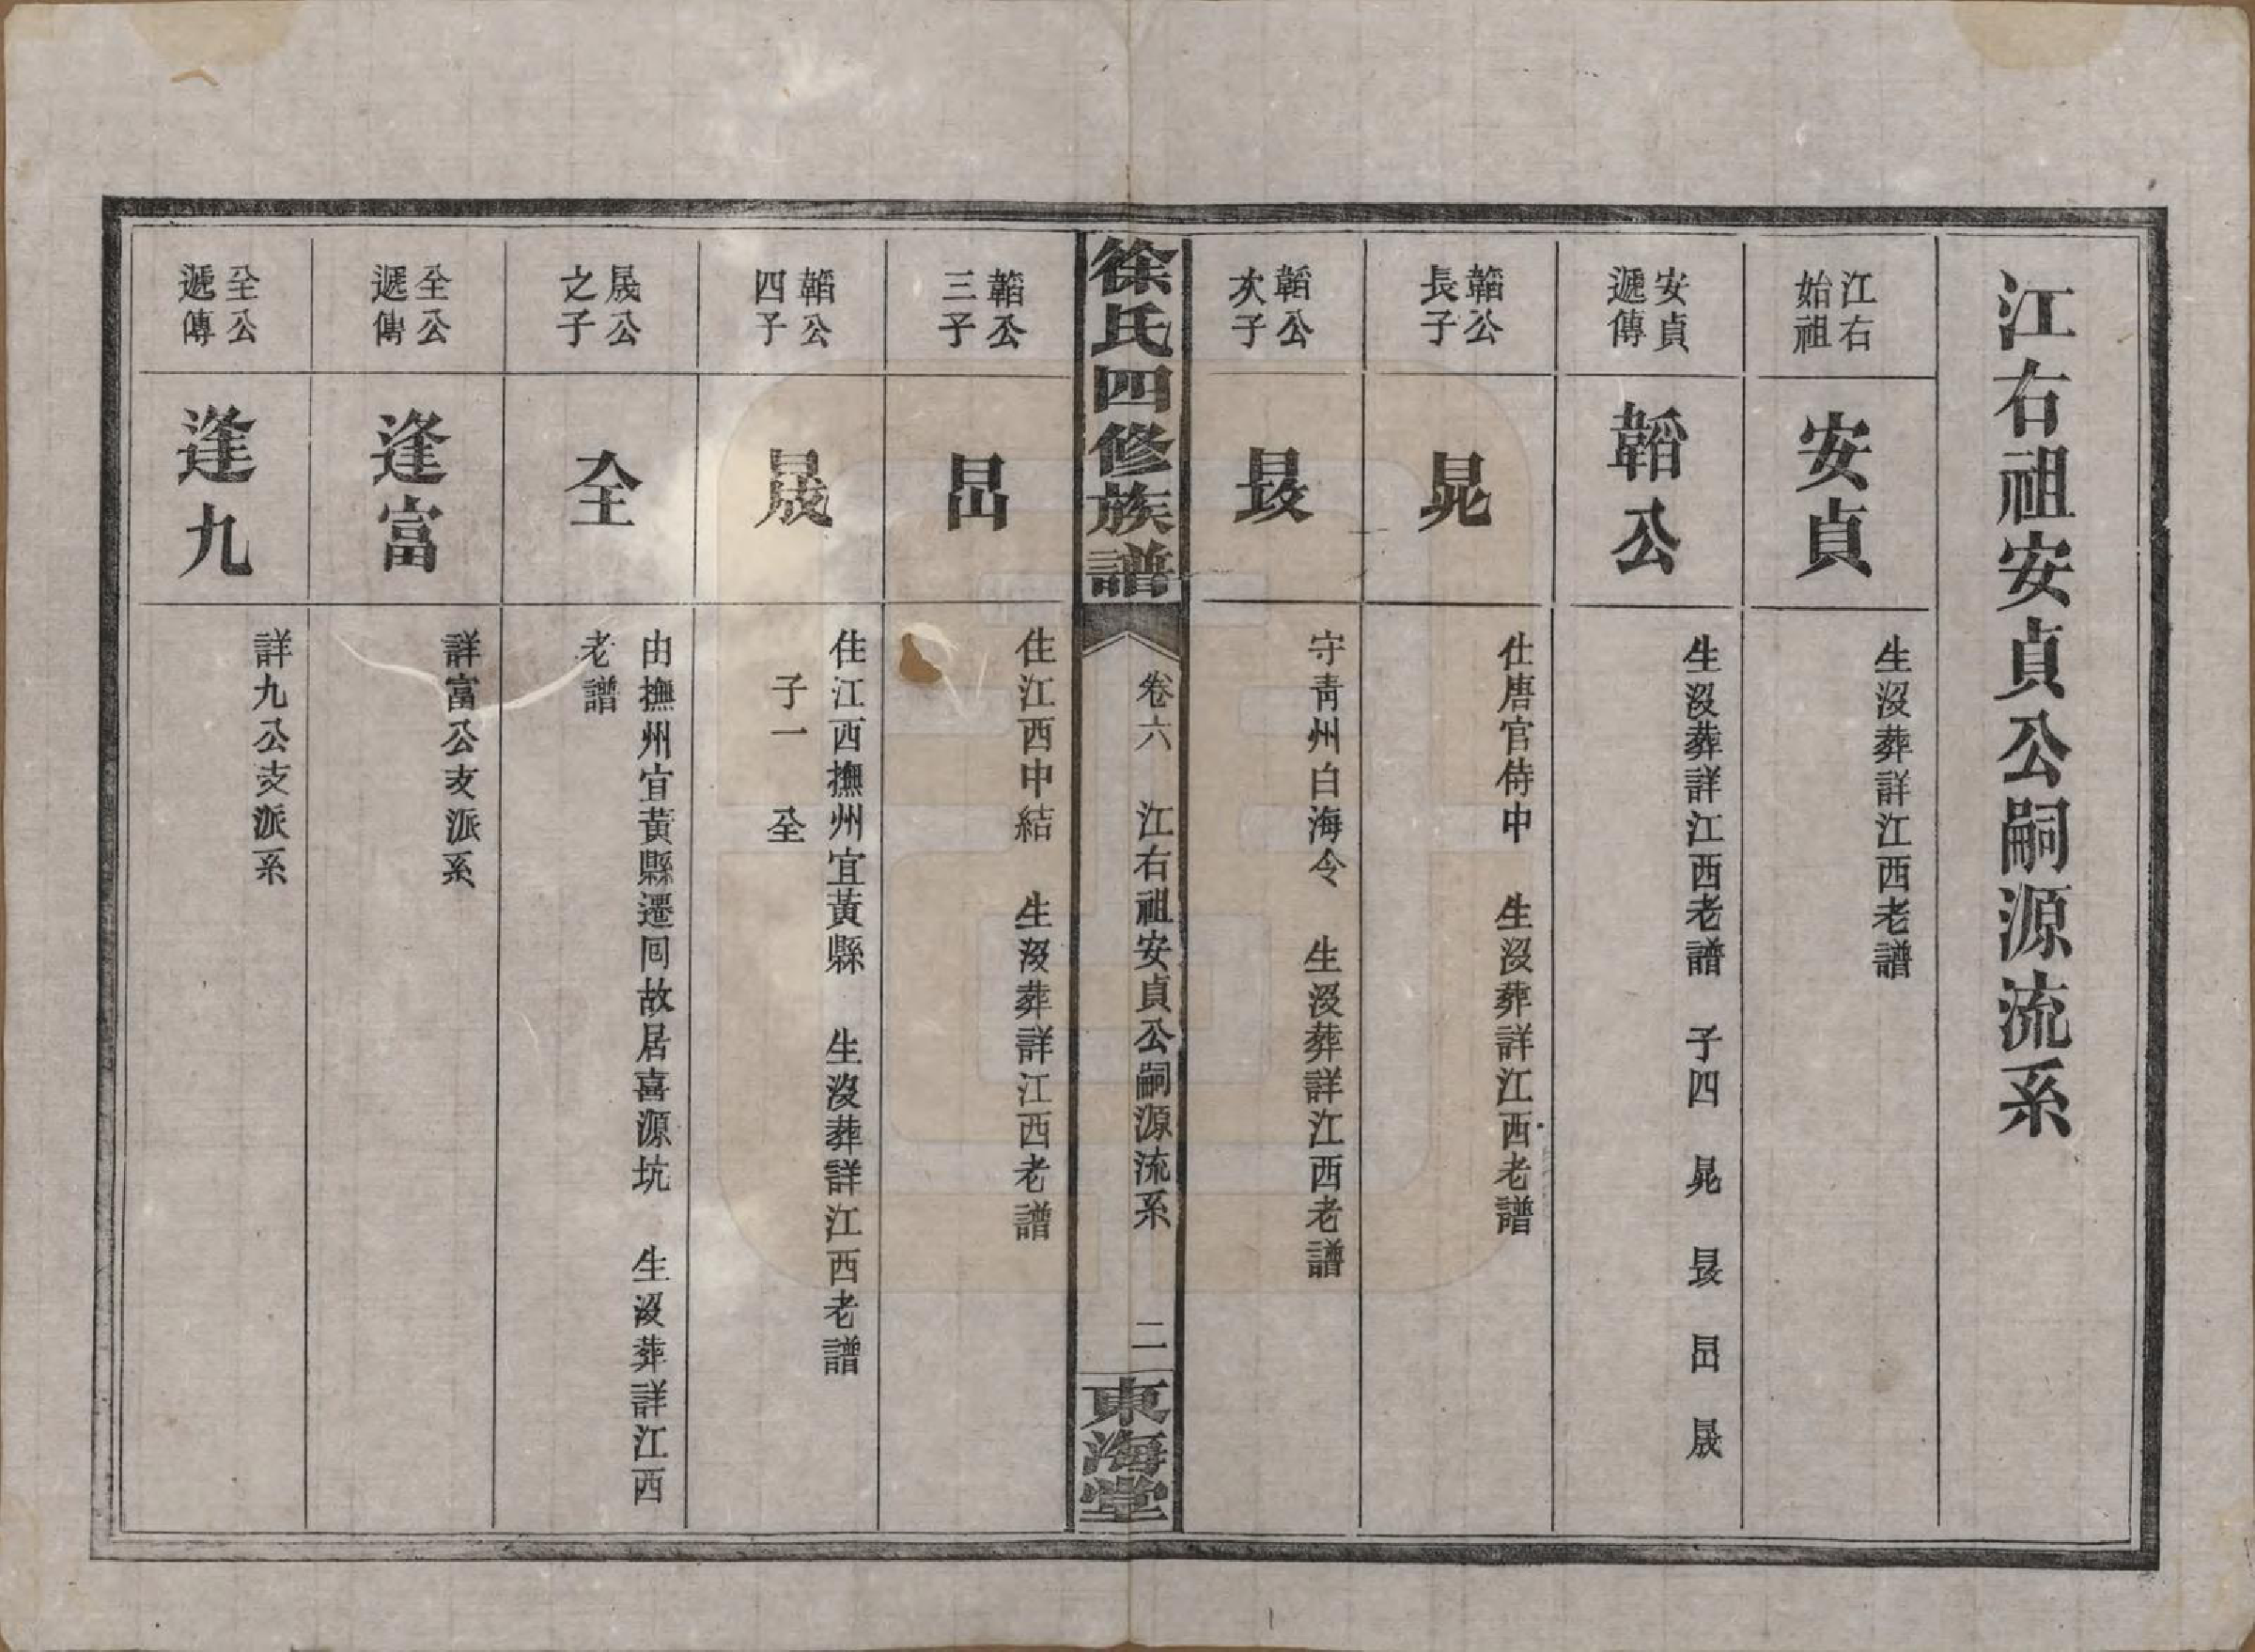 江右祖安貞公嗣源流系
江右
始祖
安貞
生沒葬詳江西老譜
安貞
遞傳
韜公
生沒葬詳江西老譜　子四　晁　㝡　昌　晟
韜公
長子
晁
仕唐官侍中　生沒葬詳江西老譜
韜公
次子
守青州白海令　生沒葬詳江西老譜
徐氏四修族譜
卷六　江右祖安貞公嗣源流系　二
東海堂
韜公
三子
住江西中結　生沒葬詳江西老譜
韜公
四子
晟
住江西撫州宜黃縣　生沒葬詳江西老譜
子一　全
晟公
之子
全
由撫州宜黃縣遷囘故居喜源坑　生沒葬詳江西
老譜
全公
遞傳
逢富
詳富公支派系
全公
遞傳
逢九
詳九公支派系